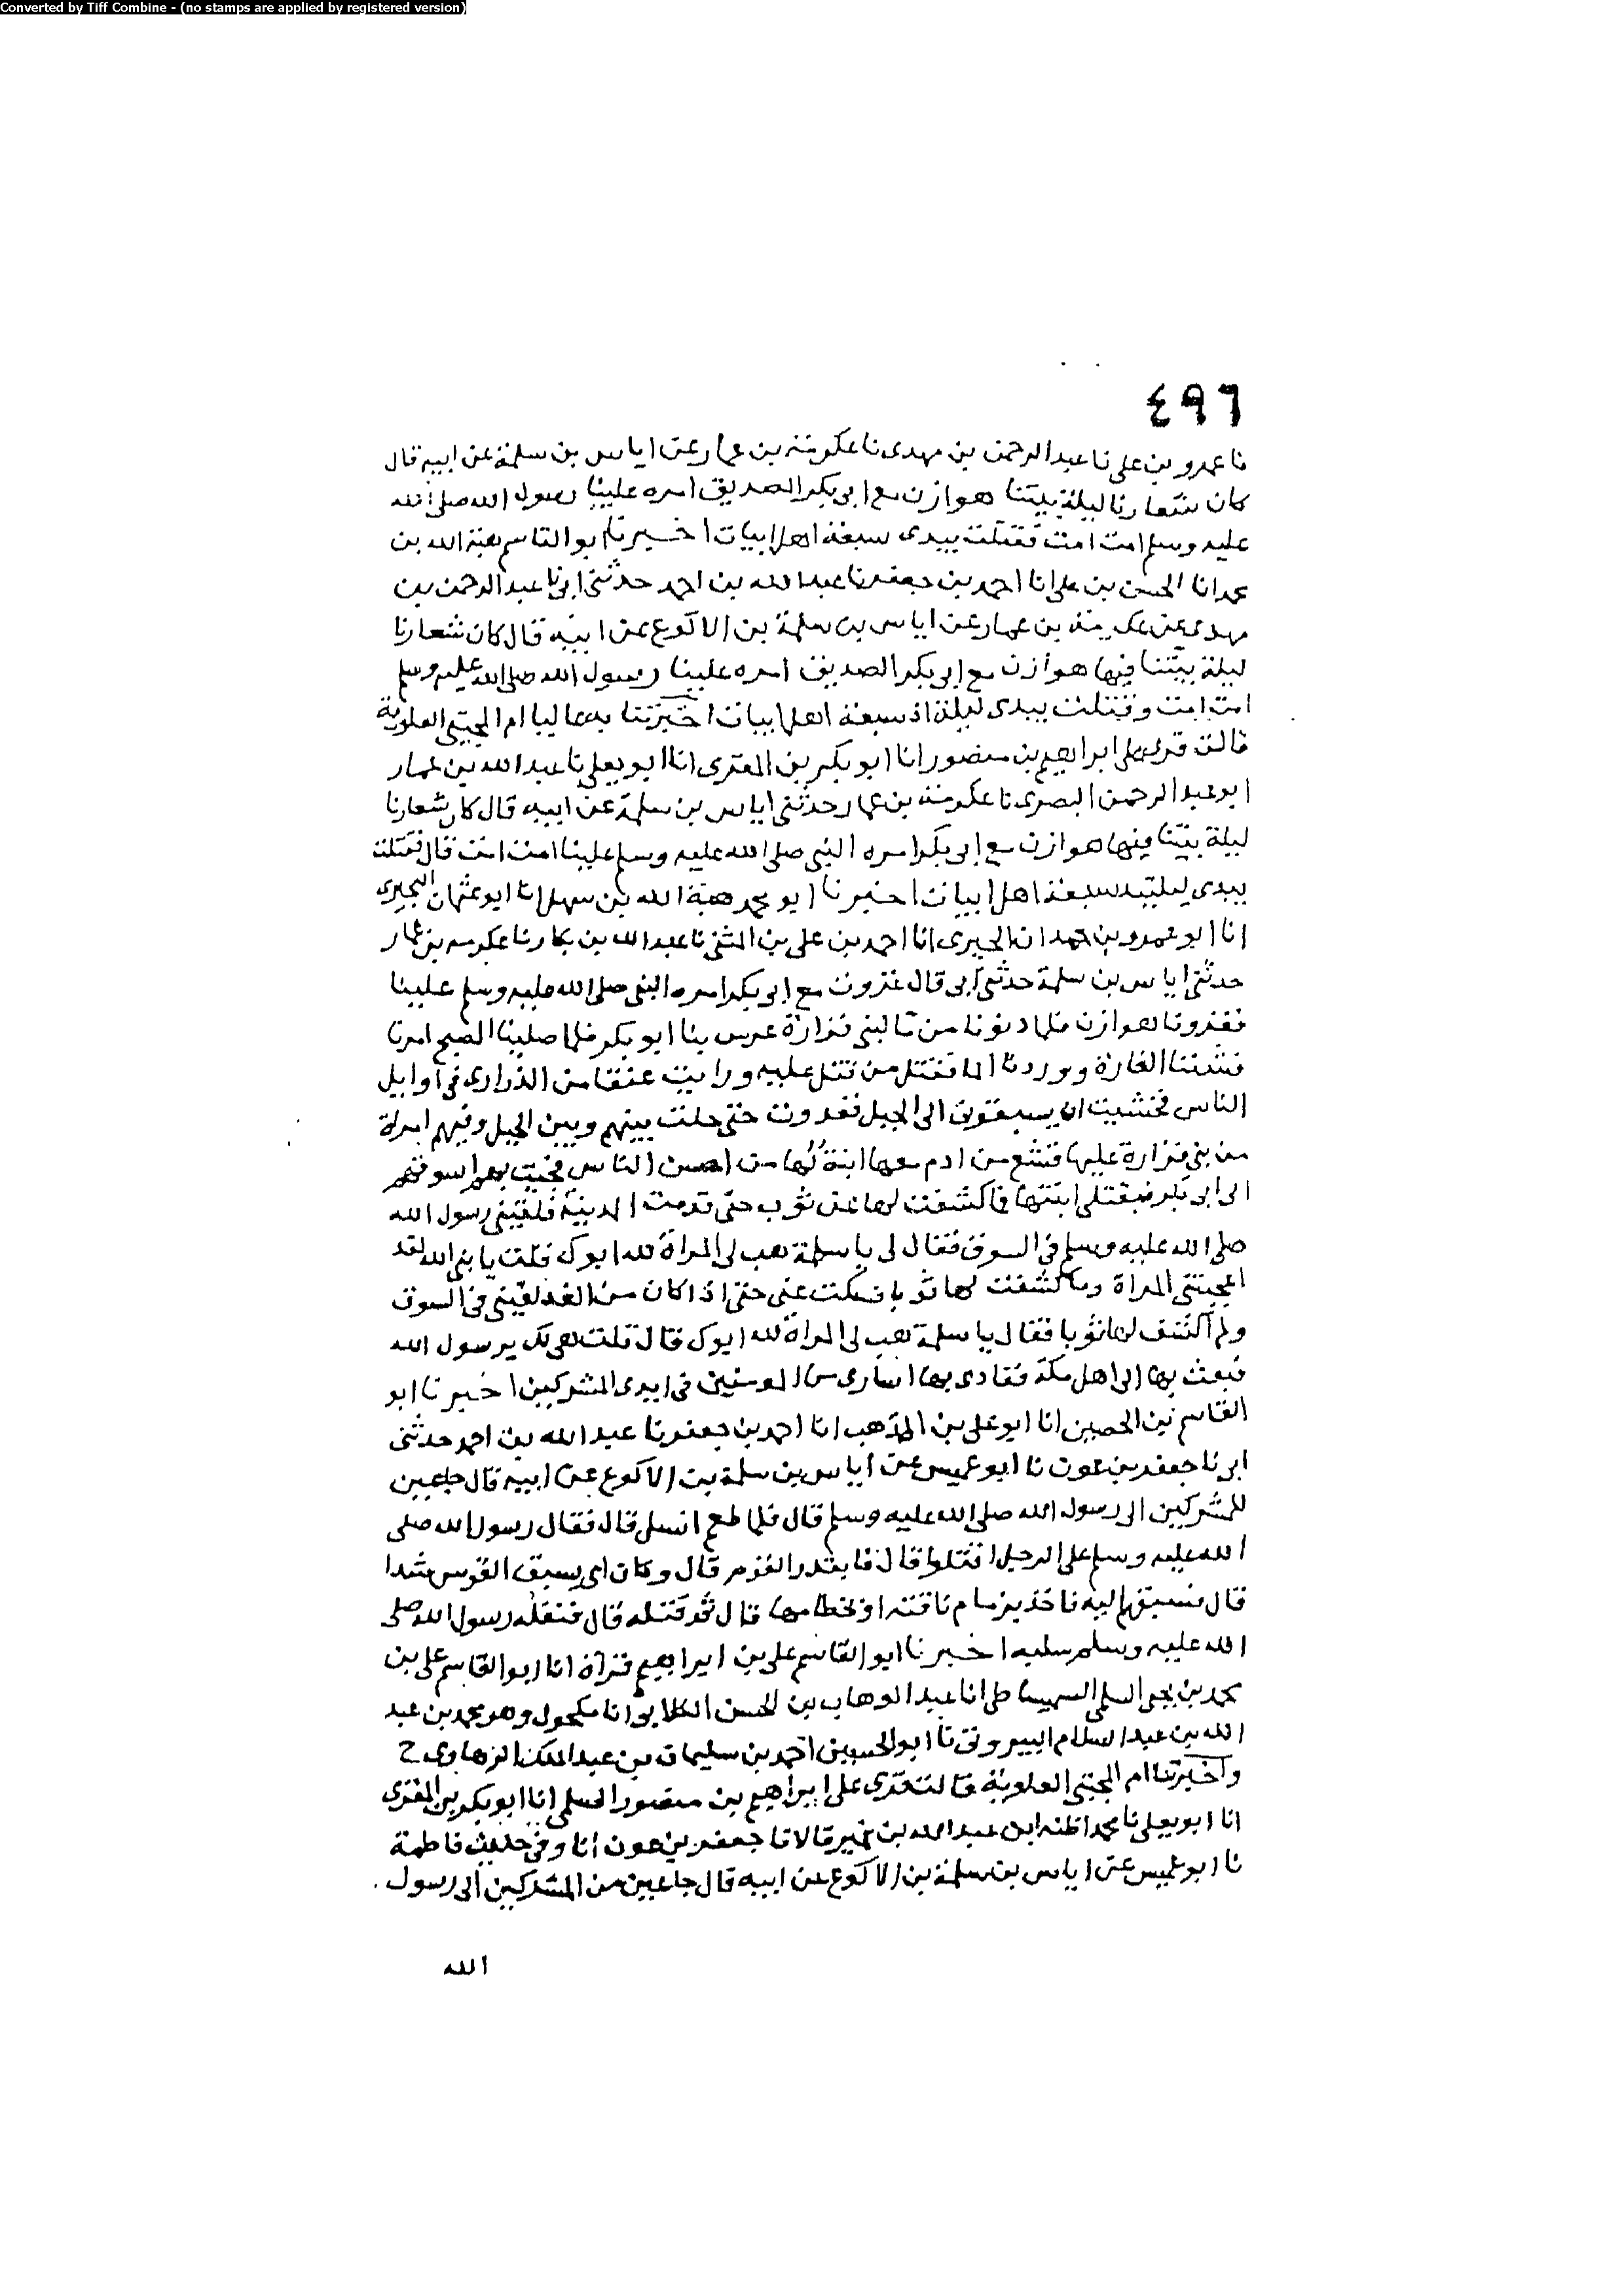 Converted by Tiff Combine - (no stamps are applied by registered version)
٤٩٦
نا عمرو بن على نا عبد الرحمن بن مهدى نا عكرمة بن عمار عن اياس بن سلمة عن ابيه قال
كان شعارنا ليلة بيتنا هوازن مع ابى بكر الصديق امره علينا رسول الله صلى الله
عليه وسلم امت امت فقتلت بيدى سبعة اهل ابيات اخبرنا ابو القاسم هبة الله بن
محمد انا الحسن بن على انا احمد بن جعفر نا عبد الله بن احمد حدثنى ابى نا عبد الرحمن بن
مهدى عن عكرمة بن عمار عن اياس بن سلمة بن الاكوع عن ابيه قال كان شعارنا
ليلة بيتنا فيها هوازن مع ابى بكر الصديق امره علينا رسول الله صلى الله عليه وسلم
امت امت وقتلت بيدى ليلة اذ سبعة اهل ابيات اخبرتنا به عاليا ام المجتبى العلوية
قالت قرى على ابراهيم بن منصور انا ابو بكر بن المقرى انا ابو يعلى نا عبد الله بن عمار
ابو عبد الرحمن البصرى نا عكرمة بن عمار حدثنى اياس بن سلمة عن ابيه قال كان شعارنا
ليلة بيتنا فيها هوازن مع ابى بكر امره النبى صلى الله عليه وسلم علينا امت امت قال فقتلت
بيدى ليلتيد سبعة اهل ابيات اخبرنا ابو محمد هبة الله بن سهل انا ابو عثمان البحيرى
انا ابو عمرو بن حمدان الحيرى انا احمد بن على بن المثنى نا عبد الله بن بكار نا عكرمه بن عمار
حدثنى اياس بن سلمة حدثنى ابى قال غزوت مع ابى بكر امره النبى صلى الله عليه وسلم علينا
فغزونا هوازن فلما دنونا من بنى فزارة عرس بنا ابو بكر فلما صلينا الصبح امرنا
فشننا الغارة ووردنا الما فقتل من قتل عليه ورايت عنقا من الذرارى فى اوايل
الناس فخشيت ان يسبقونى الى الجبل فغدوت حتى حلت بينهم وبين الجبل وفيهم امراة
من بنى فزارة عليها قشع من ادم معها ابنة لها من احسن الناس فجيت بهم اسوقهم
الى ابى بكر فنفلنى ابنتها فما كشفت لها عن ثوب حتى قدمت المدينة فلقينى رسول الله
صلى الله عليه وسلم فى السوق فقال لى يا سلمة هب لى المراة لله ابوك فقلت يا نبى الله لقد
اعجبتنى المراة وما كشفت لها ثوبا فسكت عنى حتى اذا كان من الغد لقينى فى السوق
ولم اكشف لها ثوبا فقال يا سلمة هب لى المراة لله ابوك قال قلت هى لك يرسول الله
فبعث بها الى اهل مكة ففادى بها اسارى من المومنين فى ايدى المشركين اخبرنا ابو
القاسم بن الحصين انا ابو على بن المذهب انا احمد بن جعفر نا عبد الله بن احمد حدثنى
ابى نا جعفر بن عون نا ابو عميس عن اياس بن سلمة بن الاكوع عن ابيه قال جا عين
للمشركين الى رسول الله صلى الله عليه وسلم قال فلما طعم انسل قال فقال رسول الله صلى
الله عليه وسلم على الرجل اقتلوا قال فابتدر القوم قال وكان ابى يسبق الفرس شدا
قال فسبقهم اليه فاخذ بزمام ناقته او بخطامها قال ثم قتله قال فنفله رسول الله صلى
الله عليه وسلم سلبه اخبرنا ابو القاسم على بن ابراهيم قراة انا ابو القاسم على بن
محمد بن يحيى السلمى السميساطى انا عبد الوهاب بن الحسن الكلابى انا مكحول وهو محمد بن عبد
الله بن عبد السلام البيروتى نا ابو الحسين احمد بن سليمان بن عبد الملك الرهاوى ح
واخبرتنا ام المجتبى العلوية قالت قرى على ابراهيم بن منصور السلمى انا ابو بكر بن المقرى
انا ابو يعلى نا محمد اظنه ابن عبد الله بن نمير قالا نا جعفر بن عون انا وفى حديث فاطمة
نا ابو عميس عن اياس بن سلمة بن الاكوع عن ابيه قال جا عين من المشركين الى رسول
الله